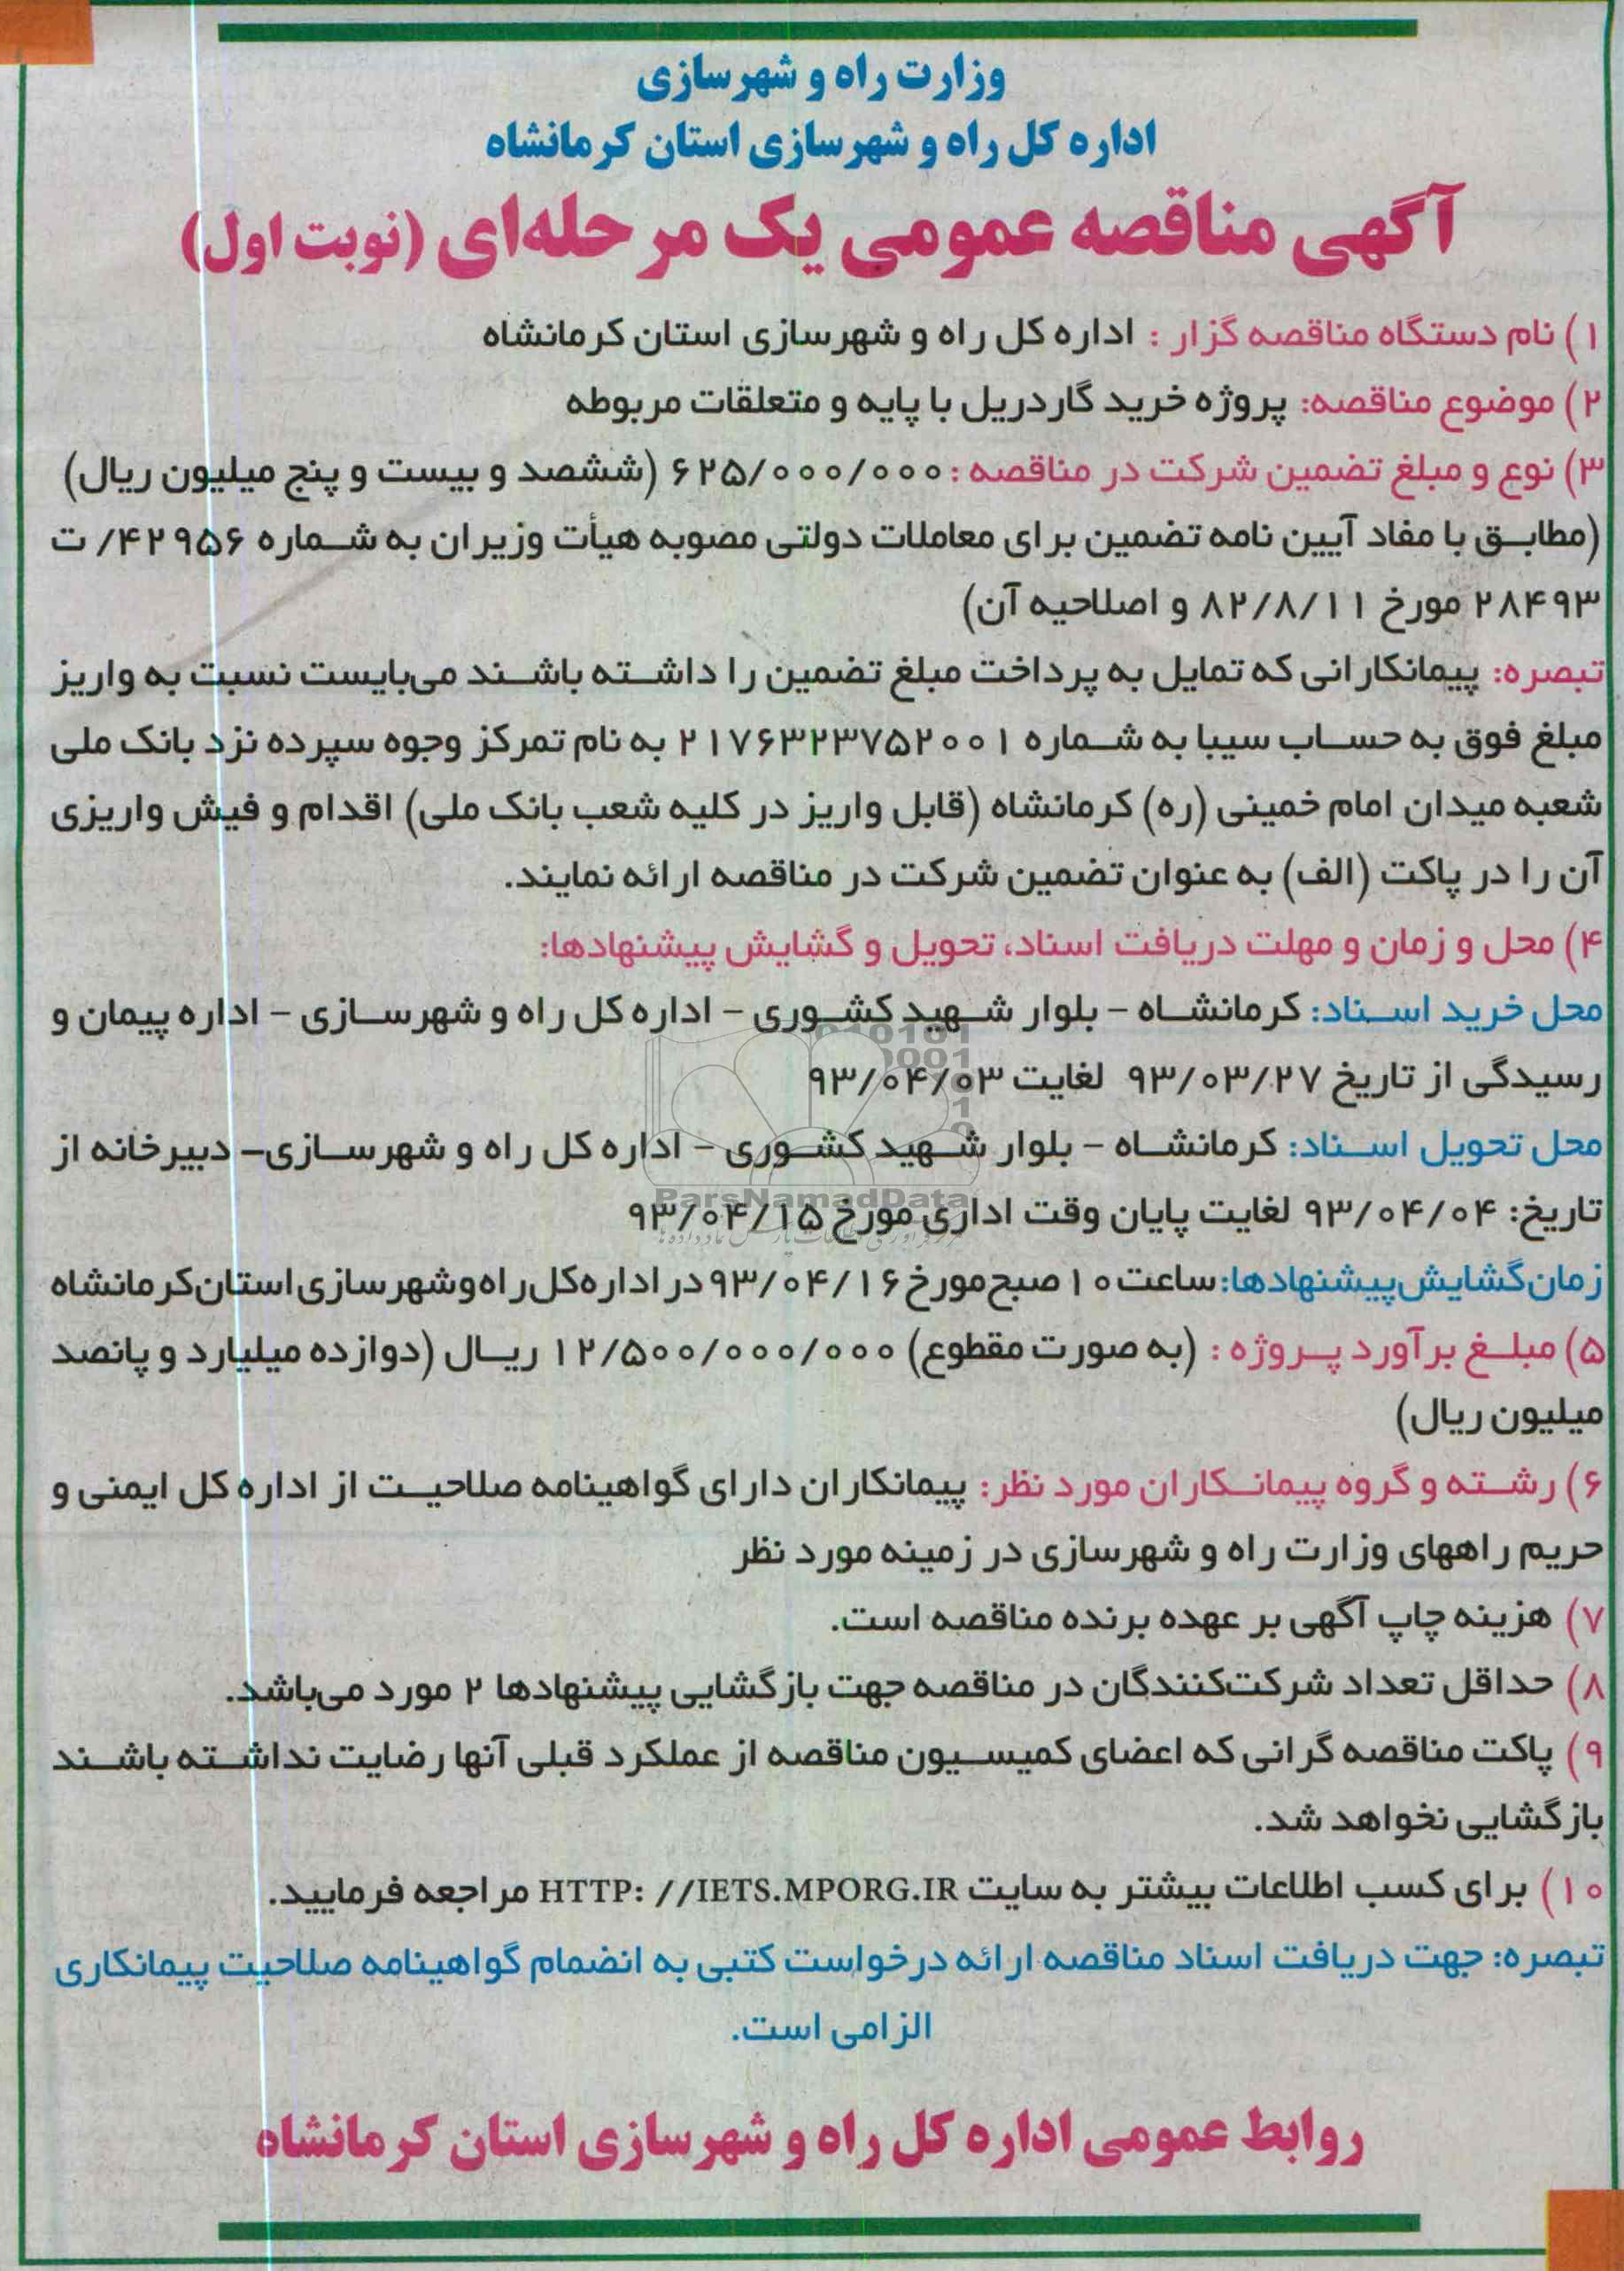 وزارت راه و شهرسازی
اداره کل راه و شهرسازی استان کرمانشاه
آگهی مناقصه عمومی یک مرحله‌ای (نوبت اول)
۱) نام دستگاه مناقصه گزار : اداره کل راه و شهرسازی استان کرمانشاه
۲) موضوع مناقصه: پروژه خرید گاردریل با پایه و متعلقات مربوطه
۳) نوع و مبلغ تضمین شرکت در مناقصه : ۶۲۵/۰۰۰/۰۰۰ (ششصد و بیست و پنج میلیون ریال)
(مطابق با مفاد آیین نامه تضمین برای معاملات دولتی مصوبه هیأت وزیران به شماره ۴۲۹۵۶/ ت
۲۸۴۹۳ مورخ ۸۲/۸/۱۱ و اصلاحیه آن)
تبصره: پیمانکارانی که تمایل به پرداخت مبلغ تضمین را داشته باشند می‌بایست نسبت به واریز
مبلغ فوق به حساب سیبا به شماره ۲۱۷۶۳۲۳۷۵۲۰۰۱ به نام تمرکز وجوه سپرده نزد بانک ملی
شعبه میدان امام خمینی (ره) کرمانشاه (قابل واریز در کلیه شعب بانک ملی) اقدام و فیش واریزی
آن را در پاکت (الف) به عنوان تضمین شرکت در مناقصه ارائه نمایند.
۴) محل و زمان و مهلت دریافت اسناد، تحویل و گشایش پیشنهادها:
محل خرید اسناد: کرمانشاه – بلوار شهید کشوری – اداره کل راه و شهرسازی – اداره پیمان و
رسیدگی از تاریخ ۹۳/۰۳/۲۷ لغایت ۹۳/۰۴/۰۳
محل تحویل اسناد: کرمانشاه – بلوار شهید کشوری – اداره کل راه و شهرسازی– دبیرخانه از
تاریخ: ۹۳/۰۴/۰۴ لغایت پایان وقت اداری مورخ ۹۳/۰۴/۱۵
ParsNamadData
زمان گشایش پیشنهادها: ساعت ۱۰ صبح مورخ ۹۳/۰۴/۱۶ در اداره کل راه و شهرسازی استان کرمانشاه
۵) مبلغ برآورد پروژه : (به صورت مقطوع) ۱۲/۵۰۰/۰۰۰/۰۰۰ ریال (دوازده میلیارد و پانصد
میلیون ریال)
۶) رشته و گروه پیمانکاران مورد نظر: پیمانکاران دارای گواهینامه صلاحیت از اداره کل ایمنی و
حریم راههای وزارت راه و شهرسازی در زمینه مورد نظر
۷) هزینه چاپ آگهی بر عهده برنده مناقصه است.
۸) حداقل تعداد شرکت‌کنندگان در مناقصه جهت بازگشایی پیشنهادها ۲ مورد می‌باشد.
۹) پاکت مناقصه گرانی که اعضای کمیسیون مناقصه از عملکرد قبلی آنها رضایت نداشته باشند
بازگشایی نخواهد شد.
۱۰) برای کسب اطلاعات بیشتر به سایت HTTP: //IETS.MPORG.IR مراجعه فرمایید.
تبصره: جهت دریافت اسناد مناقصه ارائه درخواست کتبی به انضمام گواهینامه صلاحیت پیمانکاری
الزامی است.
روابط عمومی اداره کل راه و شهرسازی استان کرمانشاه